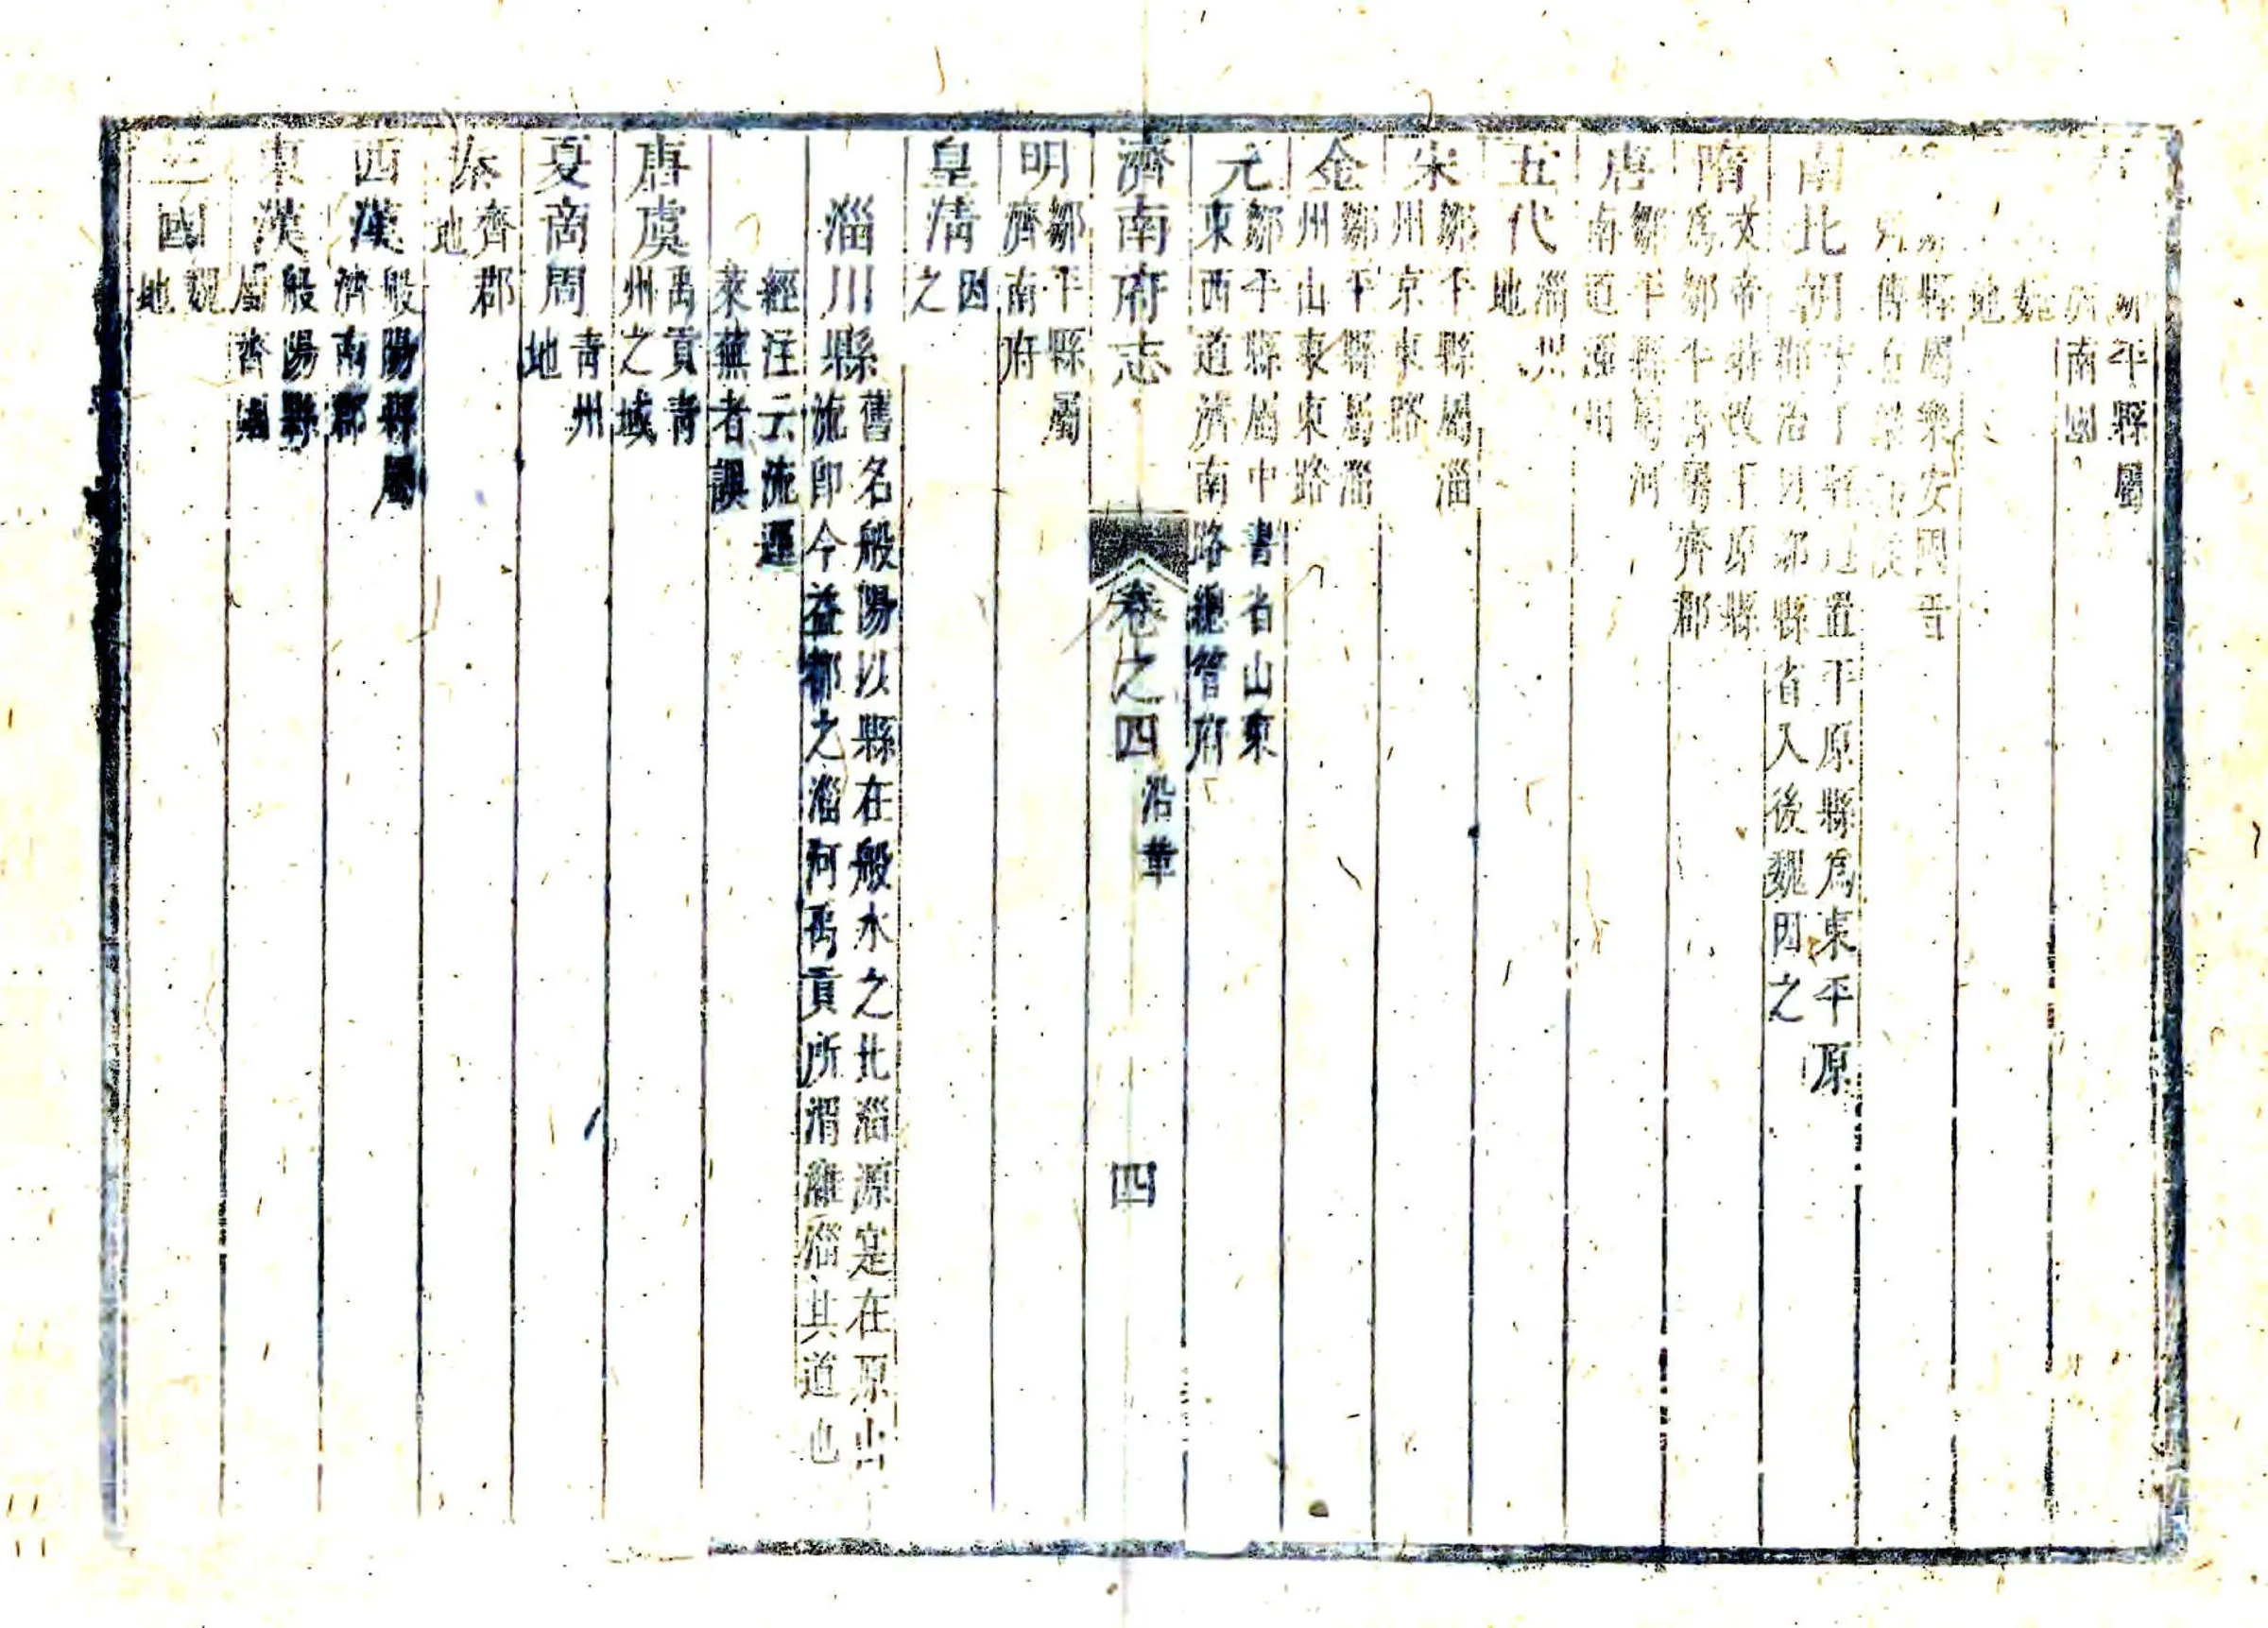 平縣屬
南國
地
縣屬樂安國晉
南北朝
置平原縣為東平原
郡治
郡縣省入後魏因之
隋
文帝
改平原縣
為鄒平
屬齊郡
唐
鄒平縣屬河
南道淄州
五代
淄州
地
宋
鄒平縣屬淄
州京東東路
金
鄒平縣屬淄
州山東東路
元
鄒平縣屬中書省山東
東西道濟南路總管府
濟南府志 卷之四 沿革 四
明
鄒平縣屬
濟南府
皇清
因
之
淄川縣
舊名般陽以縣在般水之北淄源寔在原山
流卽今益都之淄河禹貢所謂濰淄其道也
經注云流逕
萊蕪者誤
唐虞
禹貢青
州之域
夏商周
青州
地
秦
齊郡
地
西漢
般陽縣屬
濟南郡
東漢
般陽縣
屬齊國
三國
魏
地